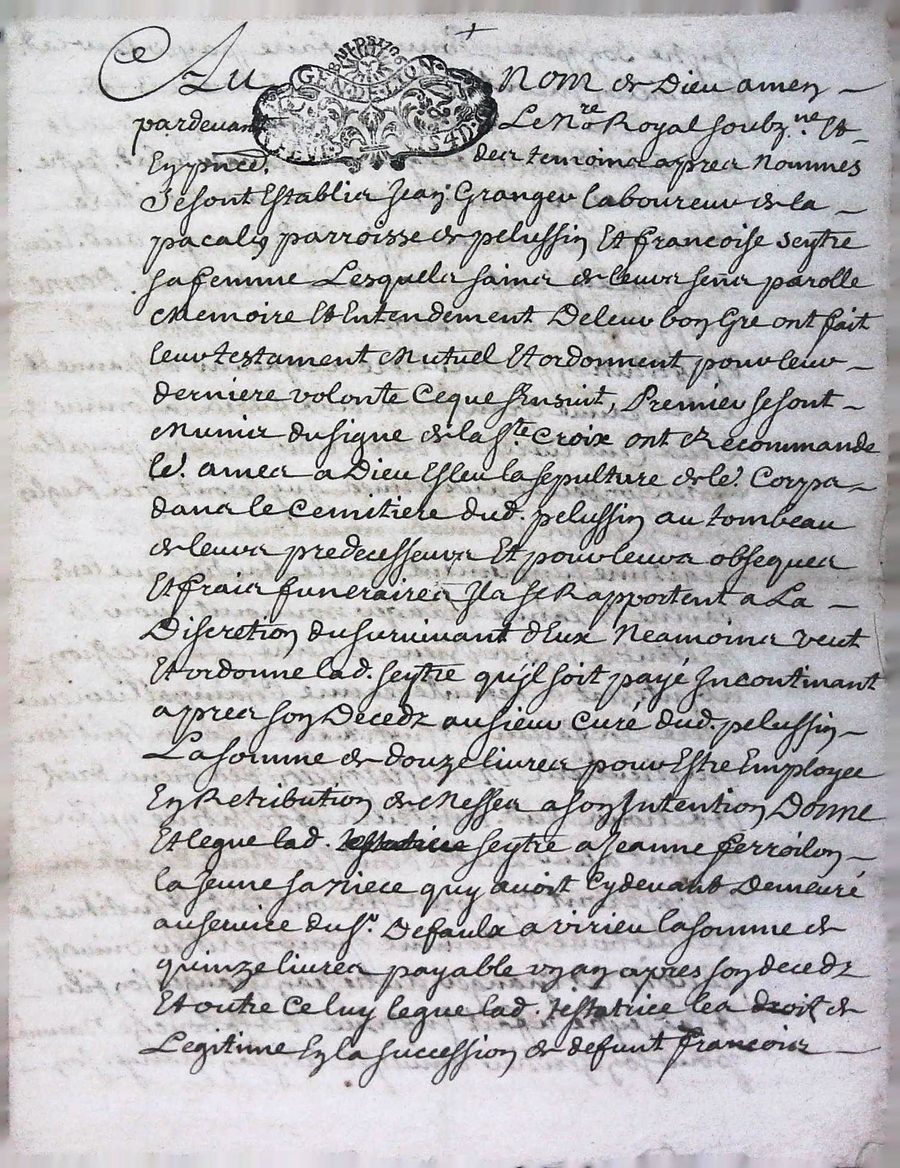 Au Nom de Dieu amen
pardevant Le Nore Royal soubzne Et
En pnce. des temoins apres Nommes
Se sont Establis Jean Granger laboureur de la
pacalis parroisse de pelussin Et francoise seytre
sa femme Lesquels sains de leurs sens parolle
Memoire Et Entendement De leur bon Gre ont fait
leur testament Mutuel Et ordonnent pour leur
derniere volonte Ce que s'Ensuit, Premier se sont
Munis du signe de la Ste Croix ont Recommande
le.r ames a Dieu Esleu la sepulture de le.r Corps
dans le Cemitiere dud. pelussin au tombeau
de leurs predecesseurs Et pour leurs obseques
Et frais funeraires Ils se Rapportent a La
Discretion du survivant d'Eux Neamoins veut
Et ordonne lad. seytre qu'il soit payé Incontinant
apres son Decedz au sieur Curé dud. pelussin
La somme de douze livres pour Estre Employee
En Retribution de Messes a son Intention Donne
Et legue lad. seytre a Jeanne ferroilon
la Jeune sa niece quy avoit Cy devant Demeuré
au service du sr. Defaulx a virieu la somme de
quinze livres payable un an apres son decedz
Et outre Celuy legue lad. testatrice les droit de
Legitime En la succession de defunt francois